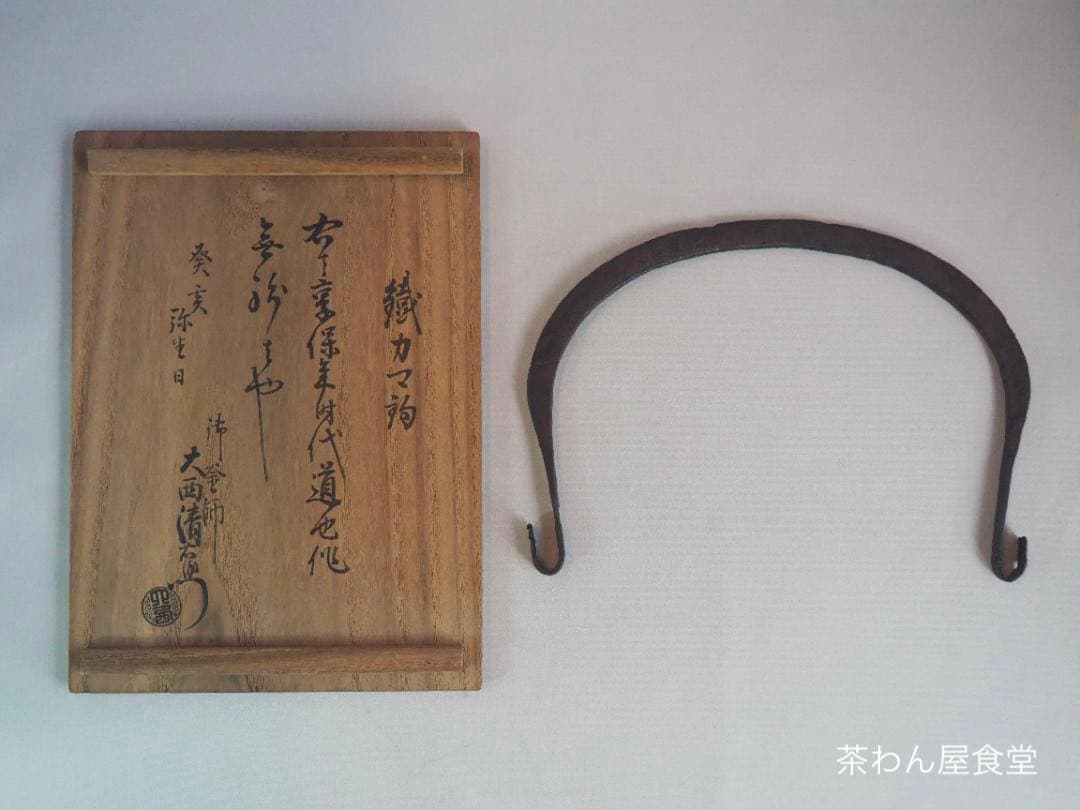 鐵カマ釣
右ハ享保年時代道也作
無紛もの也
癸亥
弥生日
御釜師
大西清右衛門
茶わん屋食堂